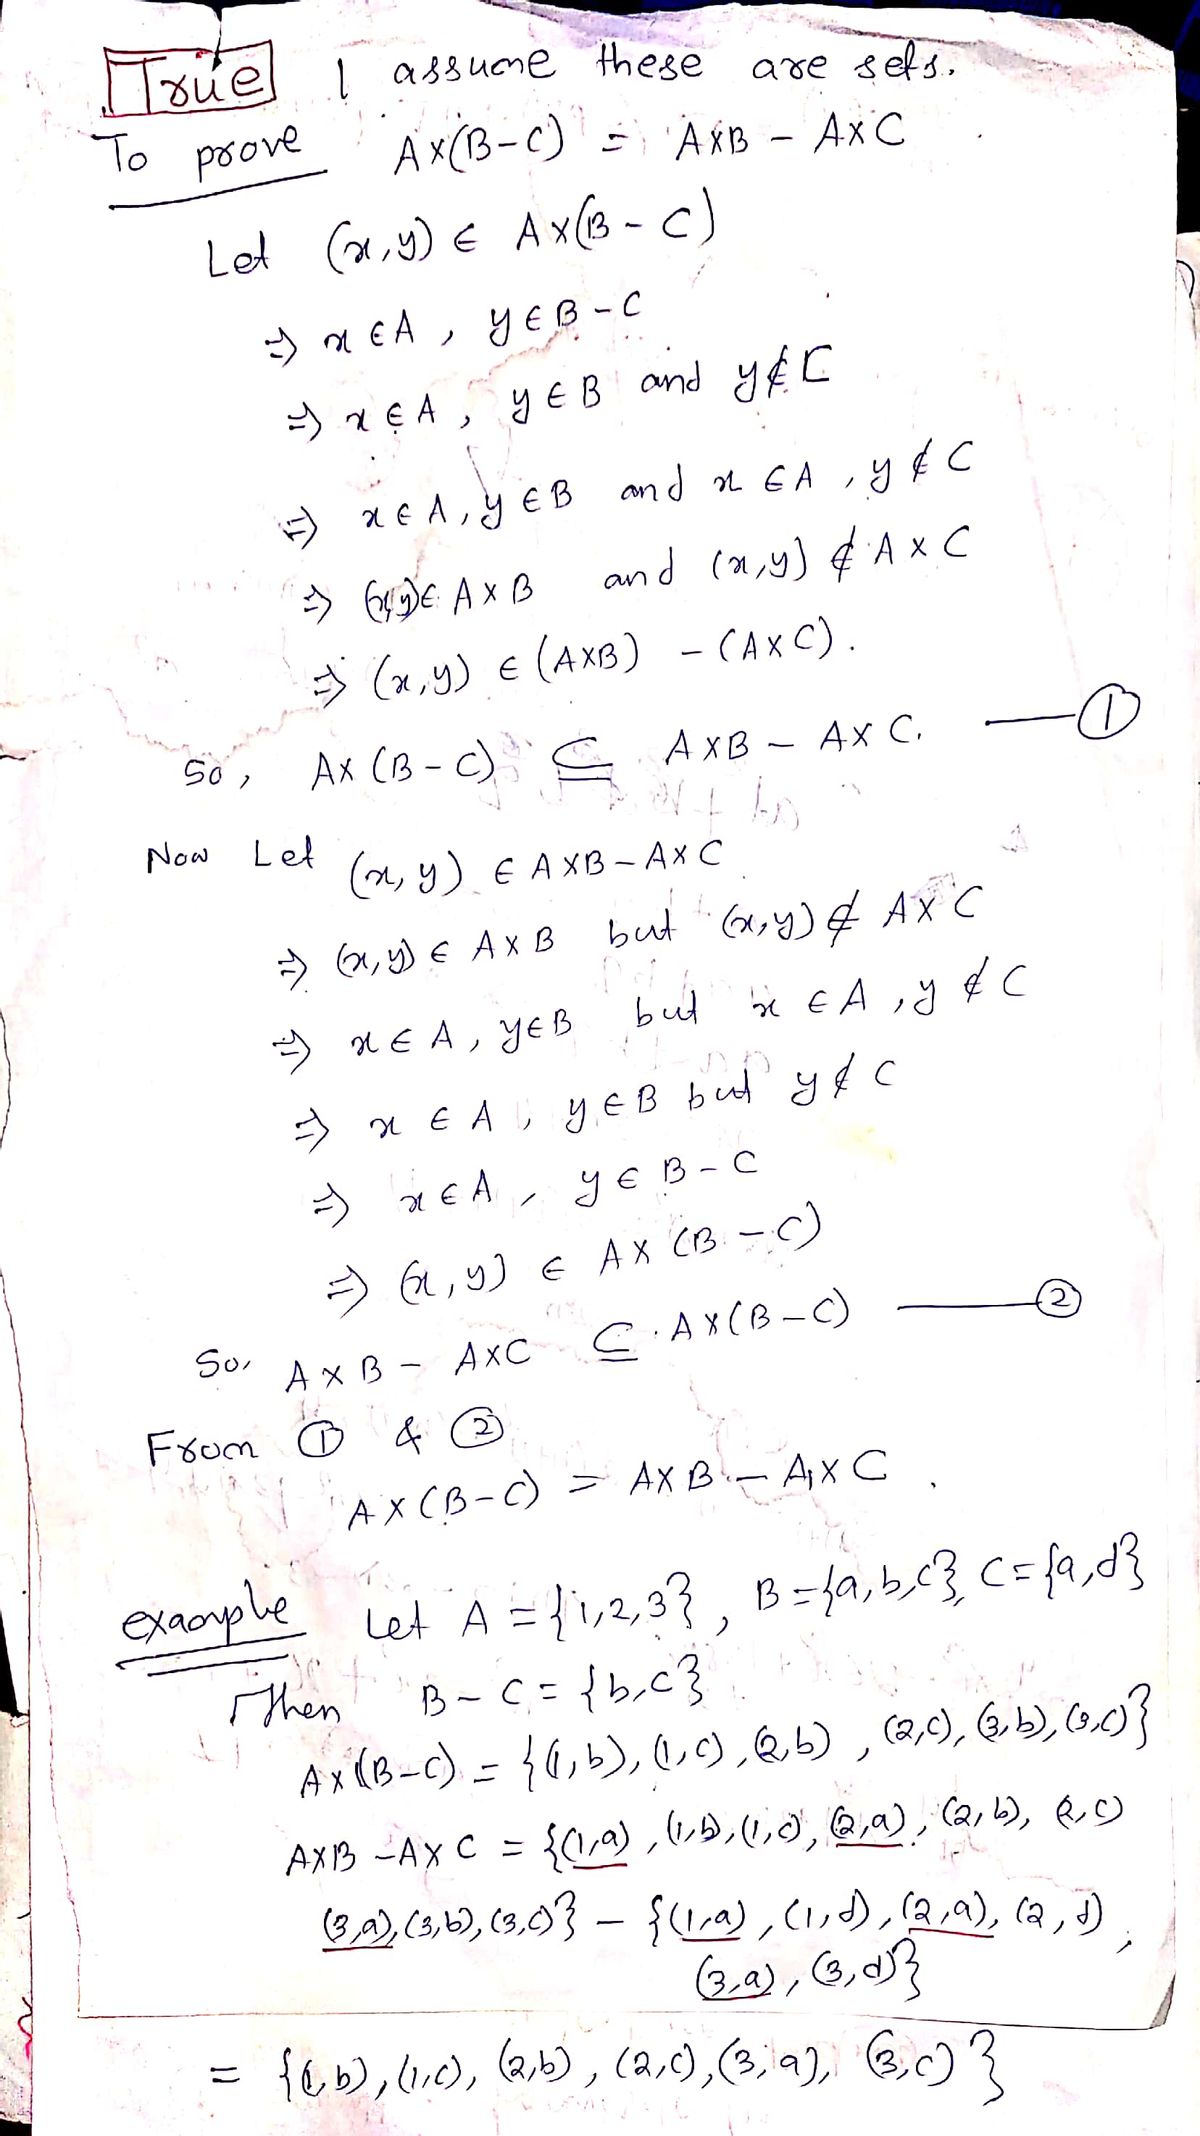 True I assume these are sets.
To prove A×(B-C) = A×B - A×C
Let (x,y) ∈ A×(B-C)
⇒ x∈A, y∈B-C
⇒ x∈A, y∈B and y∉C
⇒ x∈A, y∈B and x∈A, y∉C
⇒ (x,y)∈ A×B and (x,y) ∉ A×C
⇒ (x,y) ∈ (A×B) - (A×C).
So, A×(B-C) ⊆ A×B - A×C. —①
Now Let (x,y) ∈ A×B-A×C
⇒ (x,y) ∈ A×B but (x,y) ∉ A×C
⇒ x∈A, y∈B but x∈A, y∉C
⇒ x∈A, y∈B but y∉C
⇒ x∈A, y∈B-C
⇒ (x,y) ∈ A×(B-C)
So, A×B - A×C ⊆ A×(B-C) —②
From ① & ②
A×(B-C) = A×B - A×C.
example Let A = {1,2,3}, B={a,b,c}, C={a,d}
Then B-C = {b,c}
A×(B-C) = {(1,b), (1,c), (2,b), (2,c), (3,b), (3,c)}
A×B - A×C = {(1,a), (1,b), (1,c), (2,a), (2,b), (2,c)
(3,a), (3,b), (3,c)} - {(1,a), (1,d), (2,a), (2,d),
(3,a), (3,d)}
= {(1,b), (1,c), (2,b), (2,c), (3,a), (3,c)}